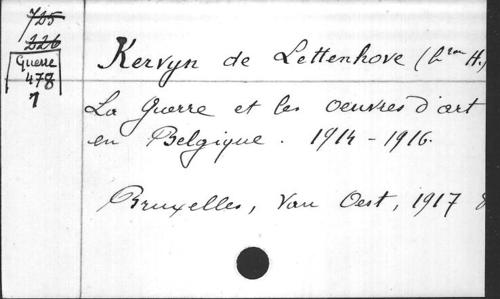 725
226
Guerre
478
1
Kervyn de Lettenhove (Bron H.)
La Guerre et les oeuvres d'art
en Belgique. 1914-1916.
Bruxelles, Van Oest, 1917 8